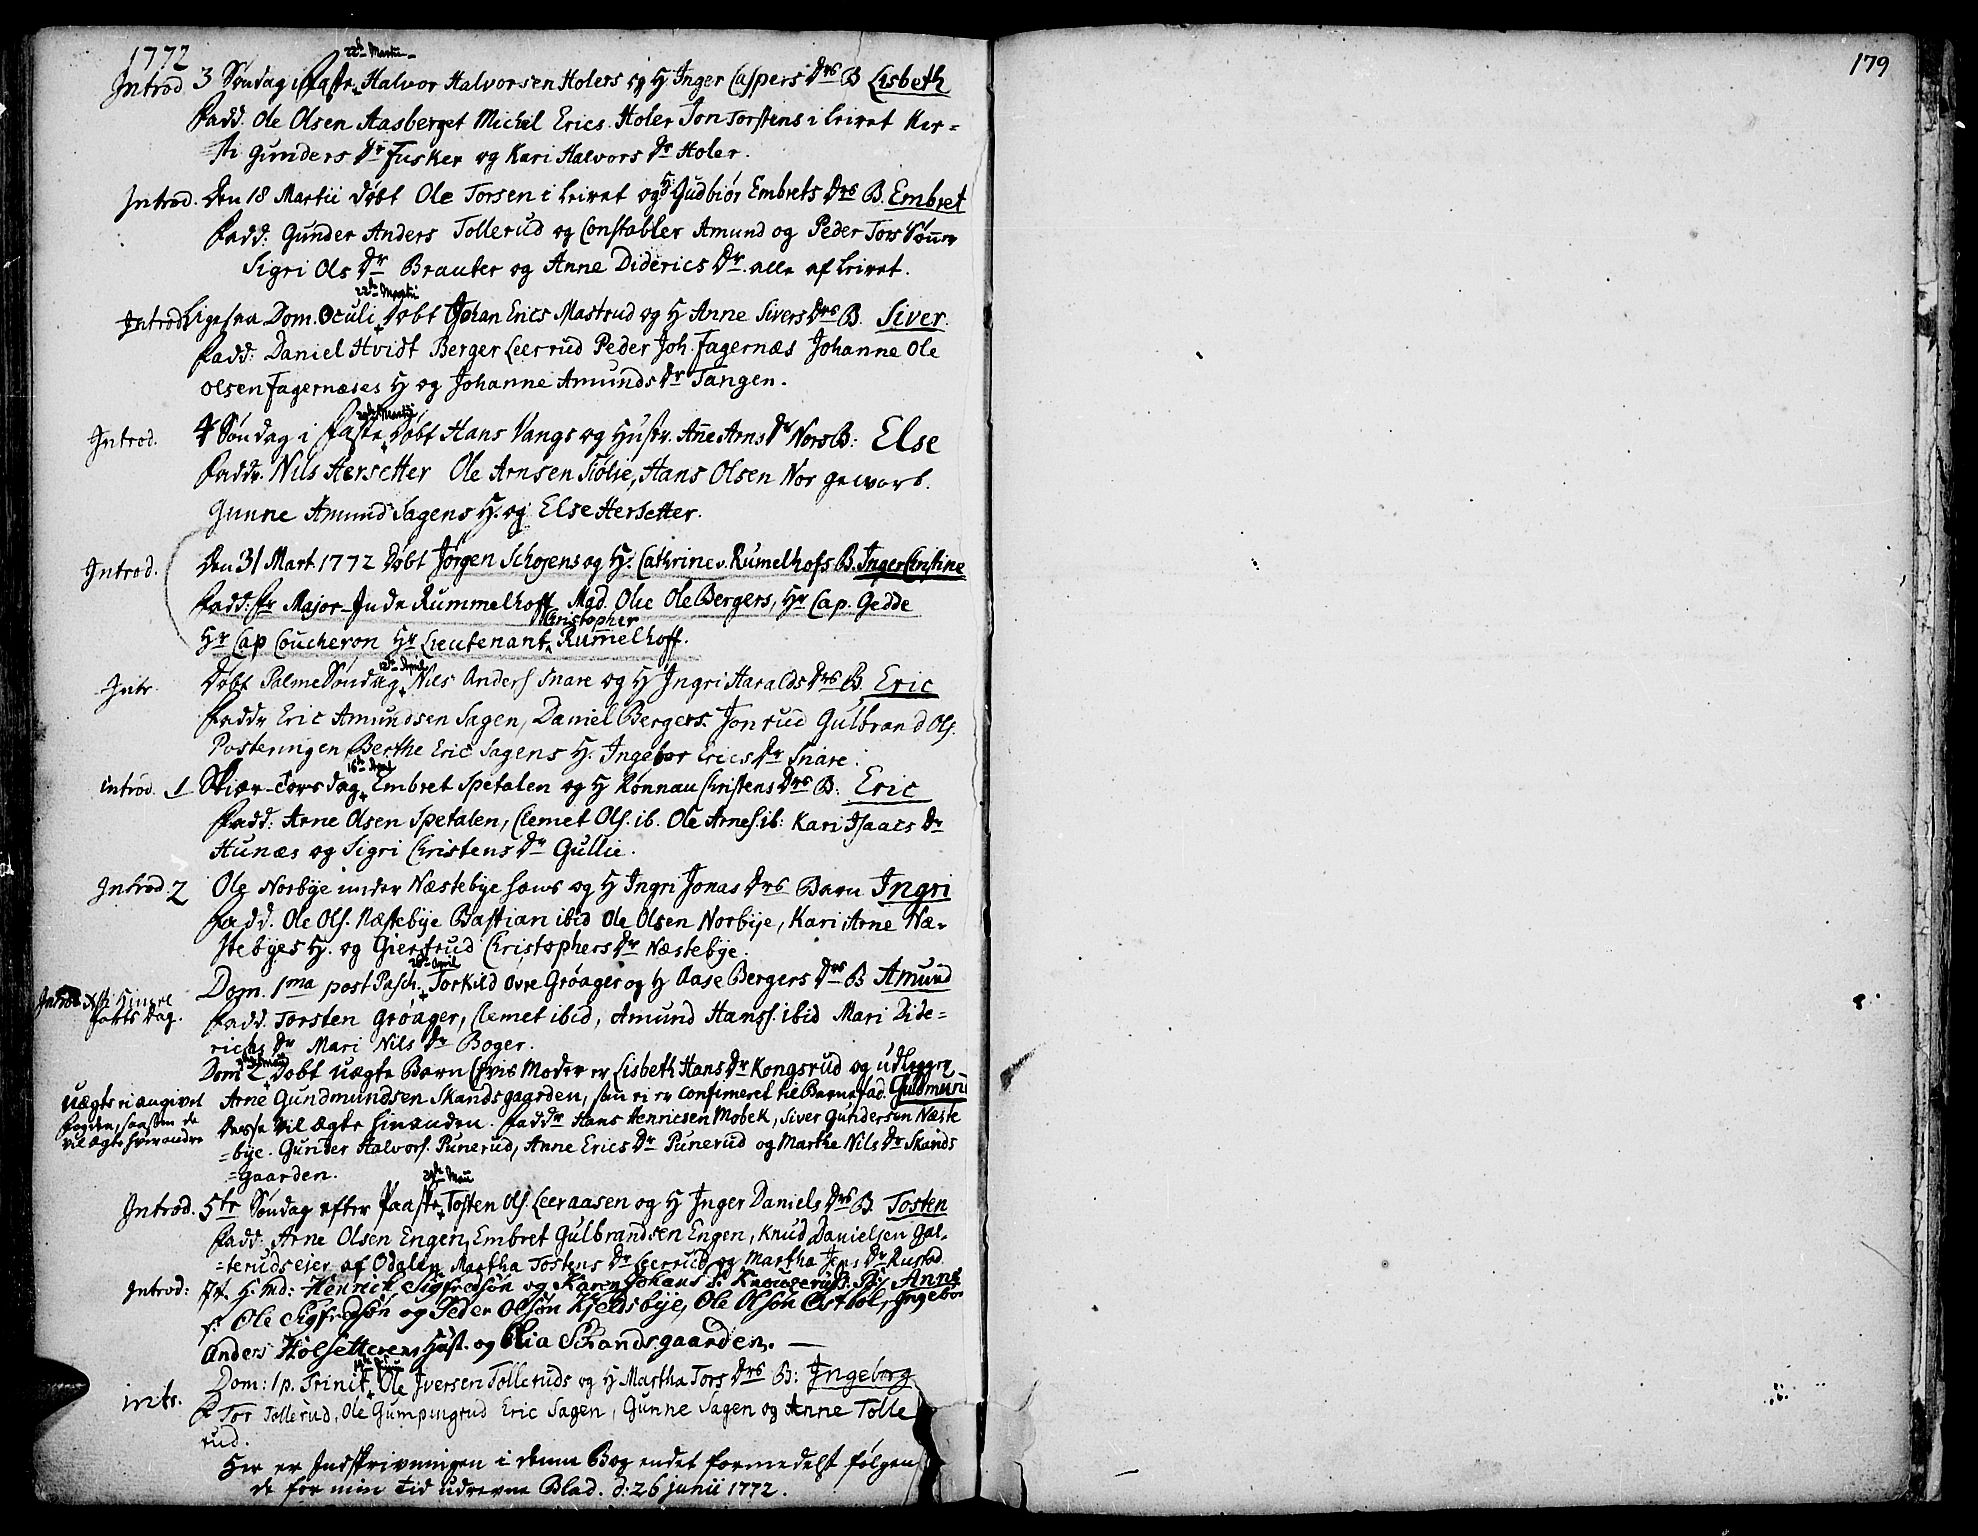 1772
179
22de Martii
Introd 3 Søndag i Faste Halvor Halvorsen Holers og H Inger Caspers Drs B Lisbeth
Fadd. Ole Olsen Aasberget Michel Erics. Holer Jon Torstens i Leiret Ker-
sti Gunders Dr Fusker og Kari Halvors Dr Holer.
Introd. Den 18 Martii døbt Ole Torsen i Leiret og H. Gudbiør Embrets Drs B. Embret
Fadd: Gunder Anders Tollerud og Constabler Amund og Peder Tors Sønner
Sigri Ols Dr Brauter og Anne Diderics Dr. alle af Leiret.
22de Martii
Introd. Ligesaa Dom. Oculi døbt Johan Erics Mastrud og H Anne Sivers Drs B. Siver.
Fadd: Daniel Hvidt Berger Leerrud Peder Joh. Fagernæs Johanne Ole
Olsen Fagernæses H og Johanne Amunds Dr Tangen.
29de Martii
Introd. 4 Søndag i Faste døbt Hans Vangs og Hustr. Anne Arns Dr Nors B: Else
Faddr. Nils Hersetter Ole Arnsen Siølie, Hans Olsen Nor gevorb.
Gunne Amund Sagens H. og Else Hersetter.
Introd. Den 31 Mart 1772 døbt Jørgen Schøjens og H. Cathrine v. Rumelhofs B. Inger Christine
Fadd: Fr Major Rummelhoff Mgd. Olie Ole Bergers, Hr Cap. Gedde
Christopher
Hr Cap Coucheron Hr Lieutenant Rumelhoff.
12te April
Intr. Døbt Palme Søndag Nils Anders Snare og H Ingri Haralds Drs B. Eric
Faddr Eric Amundsen Sagen, Daniel Bergers. Jonrud Gulbrand Ols.
Posteringen Berthe Eric Sagens H. Ingebor Erics Dr Snare.
16de April
introd. 1 Skiær-Torsdag Embret Spetalen og H Rønnau Christens Drs B: Eric
Fadd: Arne Olsen Spetalen, Clemet Ols. ib. Ole Arnes. ib: Kari Isaacs Dr
Hunæs og Sigri Christens Dr Gullie.
Introd. 2 Ole Norbye under Næstebye hans og H Ingri Jonas Drs Barn Ingri
Fadd. Ole Ols. Næstebye Bastian ibid Ole Olsen Norbye, Kari Arne Næ-
stebyes H. og Giertrud Christophers Dr Næstebye.
26de April
Dom. 1ma post Pasch. Torkild øvre Grøager og H Aase Bergers Drs B Amund
Introd. Chi Himel
farts Dag.
Fadd. Torsten Grøager, Clemet ibid, Amund Hanss. ibid Mari Dide-
richs Dr Mari Nils Dr Boger.
Dom 2 døbt uægte Barn hvis Moder er Lisbeth Hans Dr Kongsrud og udlegger
uægte ei angivet
Fogden, saasom de
vil ægte hverandre
Arne Gundmundsen Skandsgaarden, som ei er Confirmeret til Barnefad. Guldmund
Disse vil ægte hinanden. Faddr Hans Henricsen Mobek, Siver Gundersen Næste
=bye. Gunder Halvors. Punerud, Anne Erics Dr Punerud og Marthe Nils Dr Skands
=gaarden.
24de Maii
Introd. 5te Søndag efter Paaske Tosten Ols. Leeraasen og H Inger Daniels Drs B Tosten
Fadd: Arne Olsen Engen, Embret Gulbrandsen Engen, Knud Danielsen Gal-
=terudsejer af Odalen Martha Tostens Dr Leerrud og Martha Jens Dr Rustad
Introd: H. Md: Henrick Sigfredsøn og Karen Johans D. B: Anne
f: Ole Sigfredsøn og Peder Olsøn Kjeldsbye, Ole Olsøn Østbøl, Ingebor
Anders Holsetterens Hust. og Olia Skandsgaarden.
intr. Dom: 1 p. Trinit Ole Iversen Tolleruds og H Martha Tors Drs B: Ingeborg
F Tor Tollerud, Ole Gumpingrud Eric Sagen, Gunne Sagen og Anne Tolle
rud.
Her er Indskrivningen i denne Bog endet formedelst følgen
de for min Tid udrevne Blad. d: 26 junii 1772.